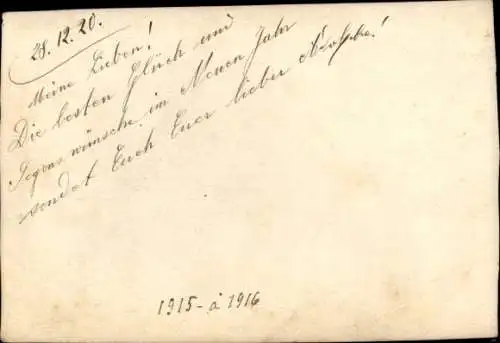 28.12.20.
Meine Lieben!
Die besten Glück und
Segenswünsche im Neuen Jahr
sendet Euch Euer lieber
1915 - à 1916